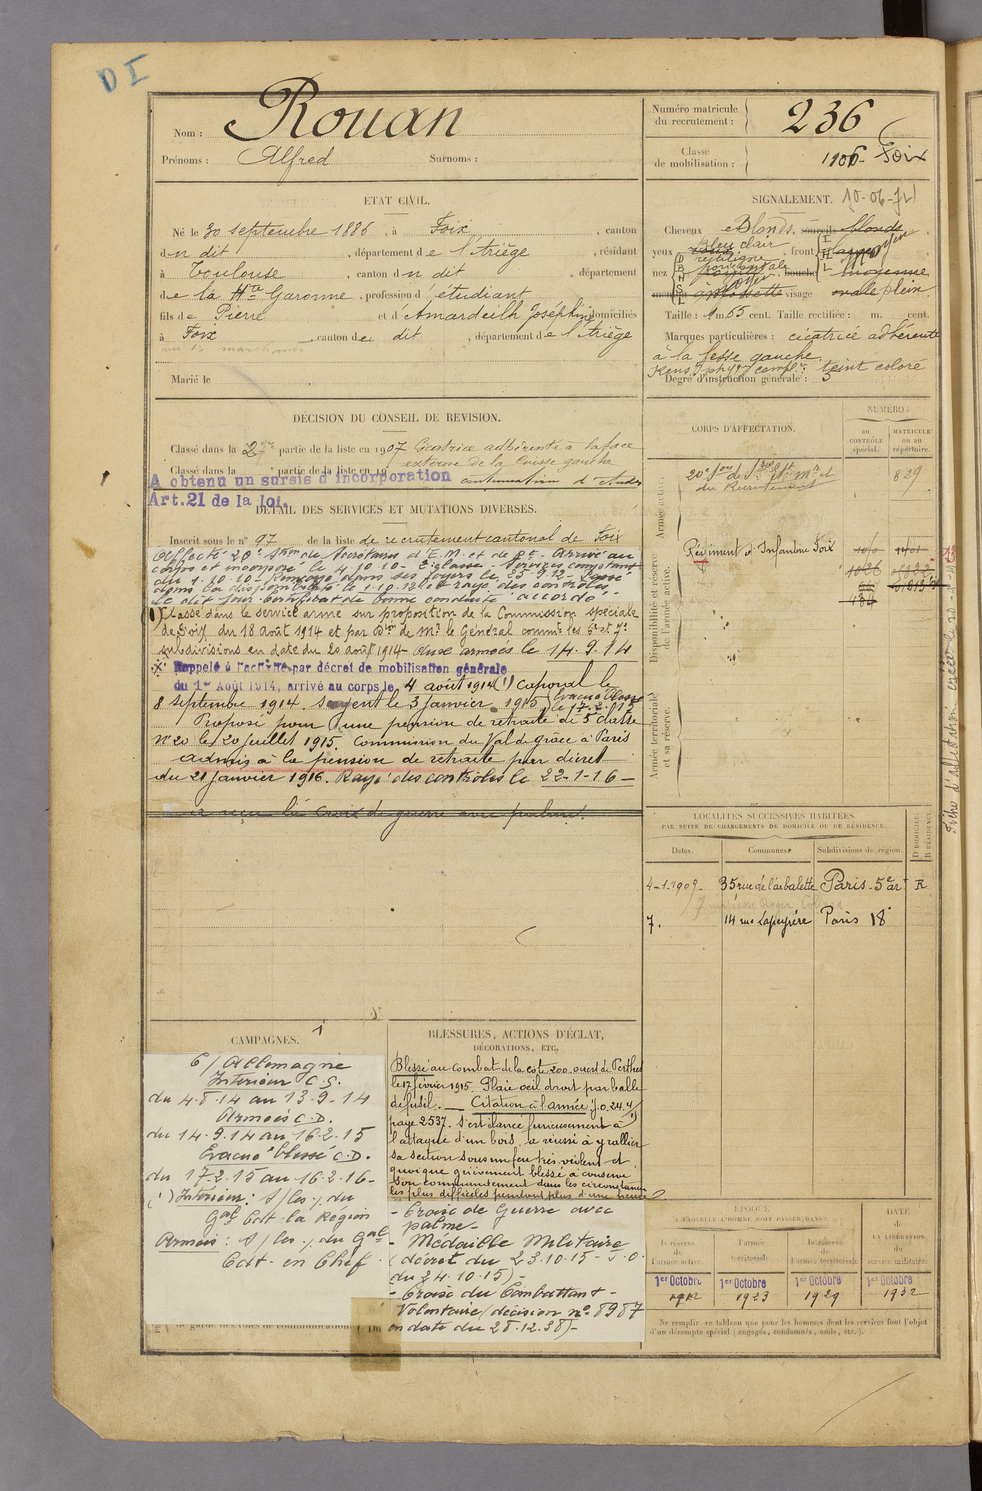 D I
Nom : Rouan
Prénoms : Alfred Surnoms :
Numéro matricule du recrutement : 236
Classe de mobilisation : 1906 - Foix
ETAT CIVIL.
Né le 30 septembre 1886, à Foix, canton
du dit, département de l'Ariège, résidant
à Toulouse, canton du dit, département
de la Hte Garonne, profession d'étudiant
fils de Pierre et d'Amardeilh Joséphine domiciliés
à Foix, canton du dit, département de l'Ariège
Marié le
SIGNALEMENT. 10-06-72
Cheveux Blonds. sourcils blonds
yeux bleu clair, front
nez rectiligne bouche moyenne
visage ovale plein
Taille : 1m 65 cent. Taille rectifiée : m. cent.
Marques particulières : cicatrice adhérente
à la fesse gauche.
teint coloré
Degré d'instruction générale : 3
DÉCISION DU CONSEIL DE REVISION.
Classé dans la 2e partie de la liste en 1907 Cicatrice adhérente à la face
Classé dans la partie de la liste en 19 externe de la cuisse gauche
A obtenu un sursis d'incorporation continuation d'études
Art. 21 de la loi.
DÉTAIL DES SERVICES ET MUTATIONS DIVERSES.
Inscrit sous le n° 97 de la liste de recrutement cantonal de Foix
Affecté 20e Son de Secrétaires d'E.M. et de Rt - Arrivé au
corps et incorporé le 4.10.10 - 2e classe - Services comptant
du 1.10.10 - Renvoyé dans ses foyers le 25.9.12 - Passé
dans la disponibilité le 1.10.12 et rayé des contrôles
le dit jour. Certificat de bonne conduite "accordé".
(1) Classé dans le service armé sur proposition de la Commission spéciale
de Foix du 18 août 1914 et par Don de Mr le Général commt les 6e et 7e
subdivisions en date du 20 août 1914 - Aux armées le 14.9.14
Rappelé à l'activité par décret de mobilisation générale
du 1er Août 1914, arrivé au corps le 4 août 1914 (1) Caporal le
8 septembre 1914. Sergent le 3 janvier 1915 (Evacué blessé
le 17.2.15
Proposé pour une pension de retraite de 5e classe
No 20 le 20 juillet 1915. Commission du Val de grâce à Paris
admis à la pension de retraite par décret
du 21 janvier 1916. Rayé des contrôles le 22-1-16 -
a reçu la Croix de guerre avec palme.
CORPS D'AFFECTATION.
NUMÉRO :
au CONTRÔLE spécial.
MATRICULE OU AU répertoire.
Armée active.
20e Son de Sres Et Mr et
du Recrutement
829
Disponibilité et réserve de l'armée active.
Régiment d'Infanterie Foix
Armée territoriale et sa réserve.
LOCALITÉS SUCCESSIVES HABITÉES
PAR SUITE DE CHANGEMENTS DE DOMICILE OU DE RÉSIDENCE.
Dates. Communes. Subdivisions de région. D DOMICILE. R RÉSIDENCE.
4-1-1909- 35 rue de l'arbalette Paris - 5e art R
7. 14 rue Lapeyrère Paris 18e
CAMPAGNES.
C/ Allemagne
Intérieur C.S.
du 4.8.14 au 13-9-14
Armées C.D.
du 14.9.14 au 16-2-15
Evacué "blessé" C.D.
du 17-2-15 au 16-2-16-
(') Intérieur : S/les., du
Gal Cdt la Région
Armées : S/les., du Gal
Cdt. en Chef.
BLESSURES, ACTIONS D'ÉCLAT,
DÉCORATIONS, ETC.
Blessé au combat de la côte 200 ouest de Perthes
le 17 février 1915. Plaie oeil droit par balle
de fusil. - Citation à l'armée J.O. 24.4/
page 2537. S'est élancé furieusement à
l'attaque d'un bois. a réussi à y rallier
sa section sous un feu très violent et
quoique grièvement blessé a conservé
son commandement dans les circonstances
les plus difficiles pendant plus d'une heure
- Croix de Guerre avec
palme -
- Médaille Militaire
(décret du 23.10.15 - J.O.
du 24.10.15) -
- Croix du Combattant
Volontaire (décision no 8987
en date du 28.12.38) -
ÉPOQUE
A LAQUELLE L'HOMME DOIT PASSER DANS :
la réserve de l'armée active
l'armée territoriale.
la réserve de l'armée territoriale
DATE de LA LIBÉRATION du service militaire.
1er Octobre 1912
1er Octobre 1923
1er Octobre 1929
1er Octobre 1932
Ne remplir ce tableau que pour les hommes dont les services font l'objet
d'un décompte spécial (engagés, condamnés, omis, etc.).